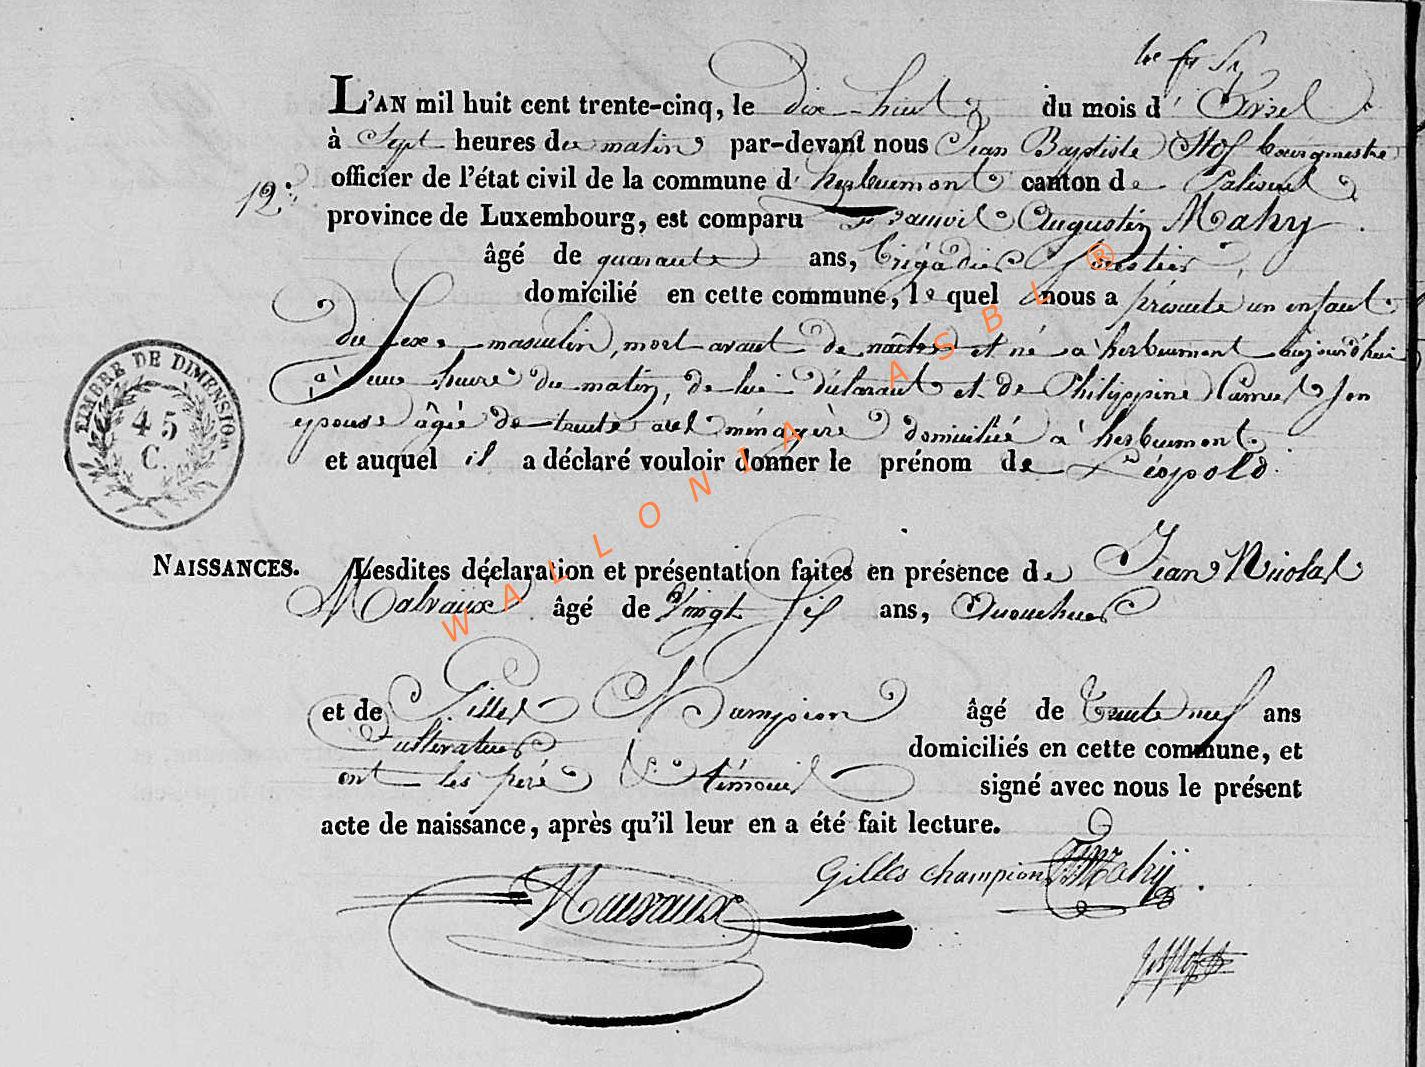 L'AN mil huit cent trente-cinq, le dix-huit du mois d'Avril
à Sept heures du matin par-devant nous Jean Baptiste Hof bourgmestre
12.
officier de l'état civil de la commune d'herbeumont canton de Paliseul
province de Luxembourg, est comparu Augustin Mahy
âgé de quarante ans, brigadier forestier,
domicilié en cette commune, le quel nous a présenté un enfant
du sexe masculin, mort avant de naître et né à herbeumont aujourd'hui
à une heure du matin, de lui déclarant et de Philippine Camus son
épouse âgée de trente ménagère domiciliée à herbeumont
et auquel il a déclaré vouloir donner le prénom de Léopold.
TIMBRE DE DIMENSION
45
C.
NAISSANCES.
Lesdites déclaration et présentation faites en présence de Jean Nicolas
Malvaux âgé de Vingt six ans,
et de Gilles Champion âgé de trente neuf ans
Cultivateur domiciliés en cette commune, et
ont les père & témoins signé avec nous le présent
acte de naissance, après qu'il leur en a été fait lecture.
Gilles champion Mahÿ
Mauvaux
WALLONIA ASBL ®